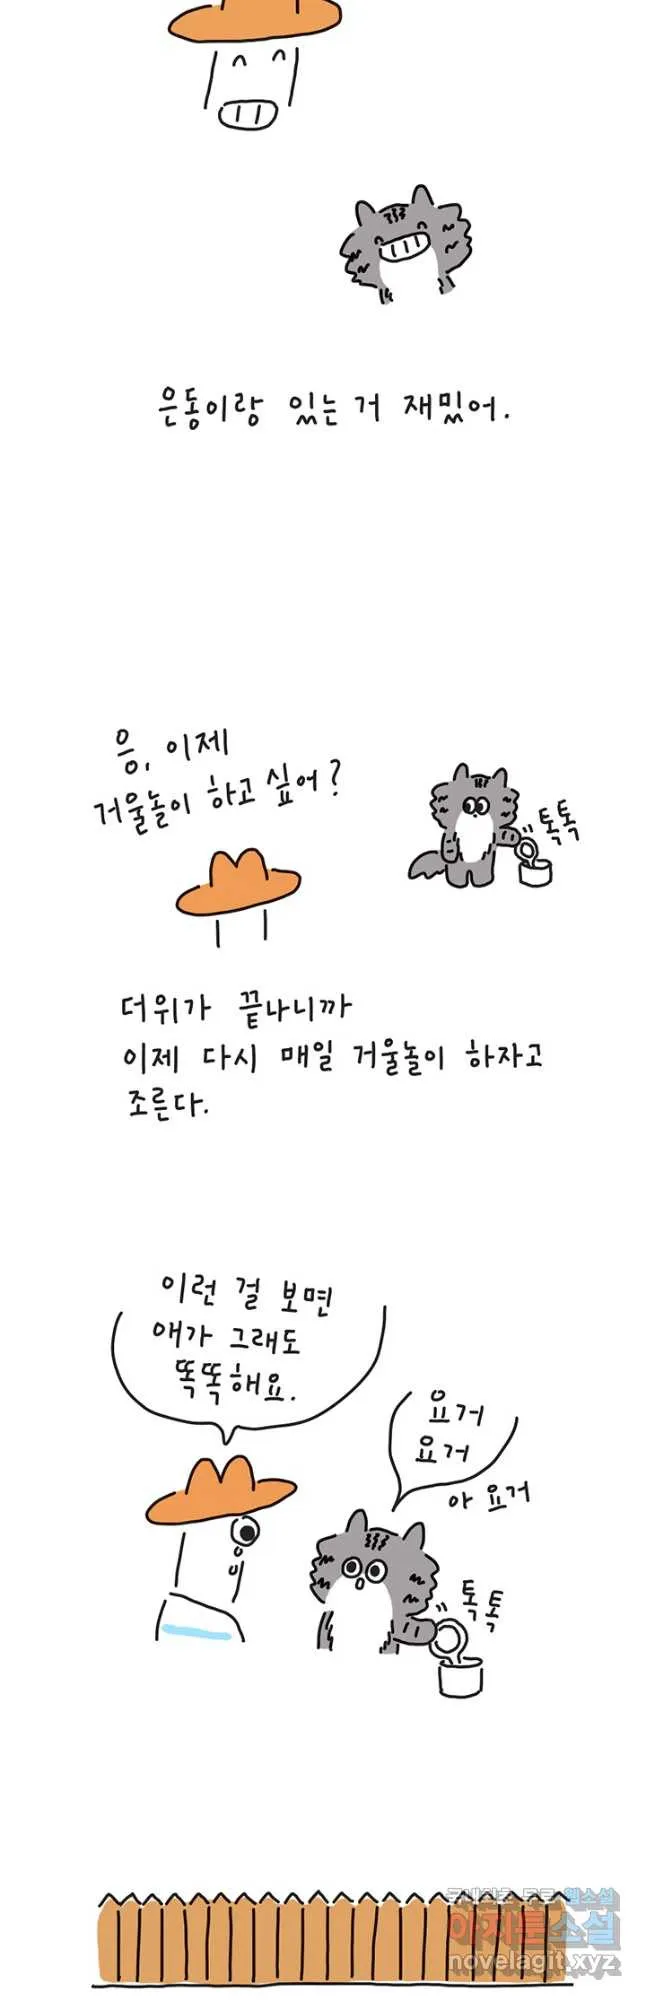 은동이랑 있는 거 재밌어.
응, 이제
거울놀이 하고 싶어?
톡톡
더위가 끝나니까
이제 다시 매일 거울놀이 하자고
조른다.
이런 걸 보면
얘가 그래도
똑똑해요.
요거
요거
아 요거
톡톡
국내최초 무료 웹소설
아지툰소설
novelagit.xyz